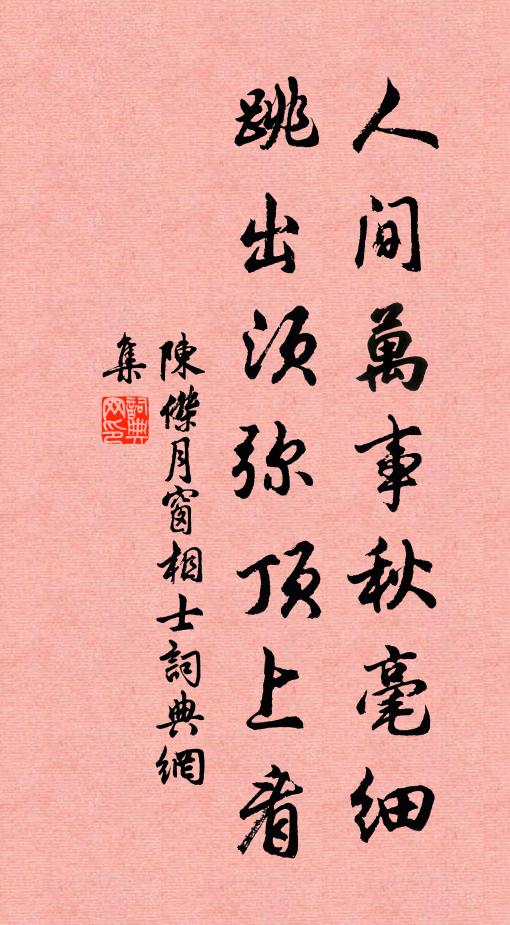 人间萬事秋毫细
跳出须弥顶上看
陳傑月窗相士詞典網
集
詞典網印